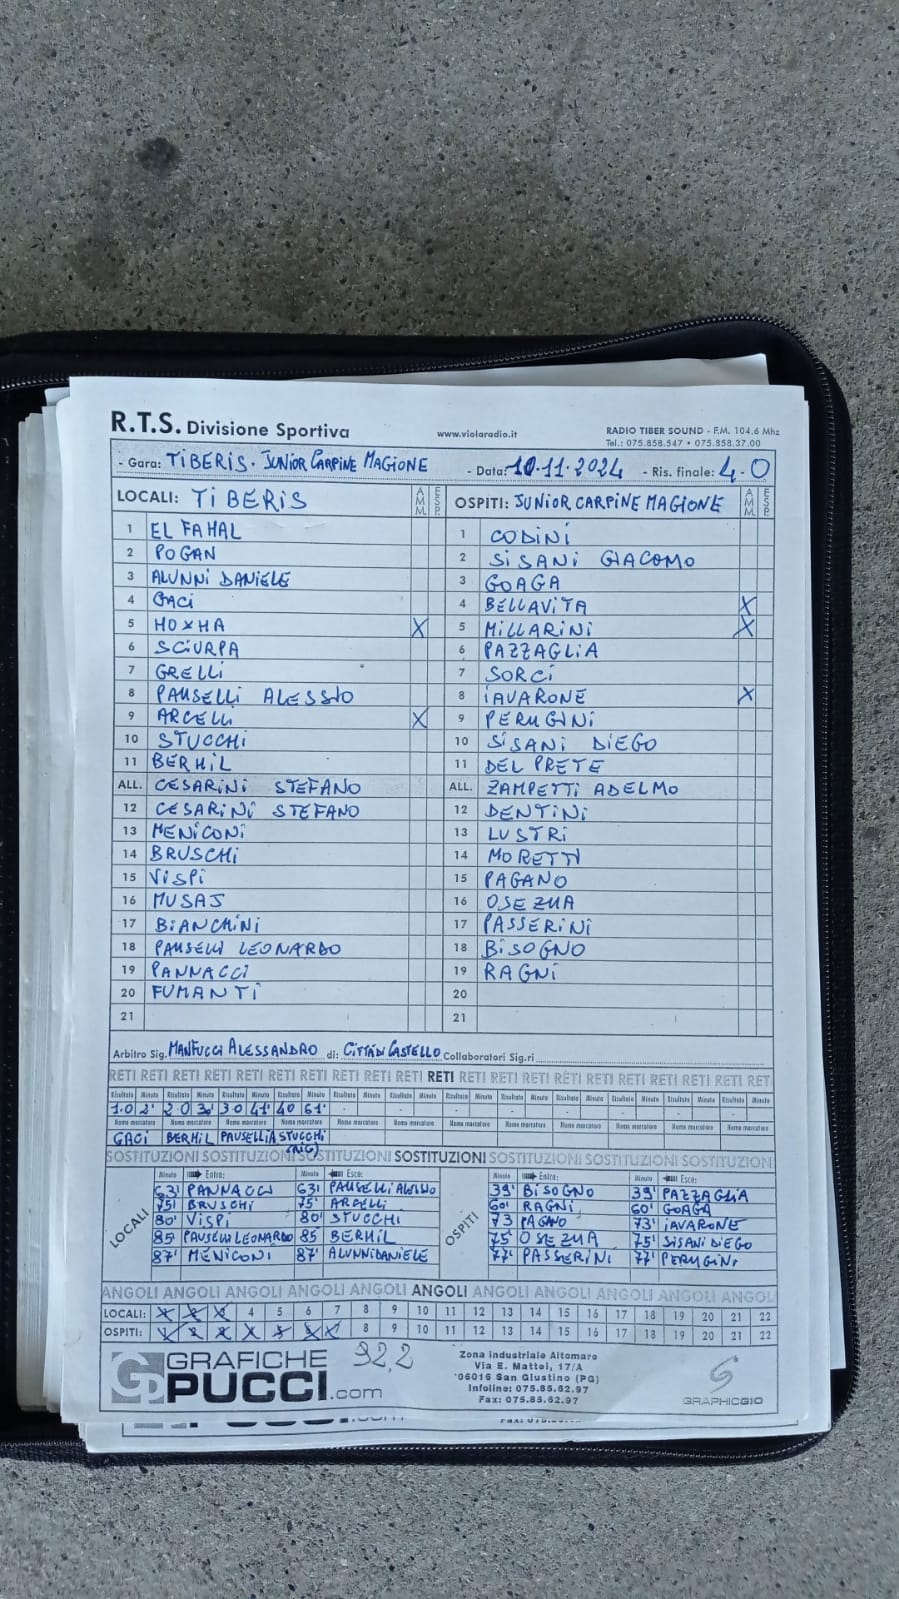 R.T.S. Divisione Sportiva www.violaradio.it RADIO TIBER SOUND - F.M. 104.6 Mhz
Tel.: 075.858.547 • 075.858.37.00
- Gara: TIBERIS. JUNIOR CARPINE MAGIONE - Data: 10.11.2024 - Ris. finale: 4-0
LOCALI: TIBERIS AMM. ESP. OSPITI: JUNIOR CARPINE MAGIONE AMM. ESP.
1 EL FAHAL 1 CODINI
2 POGAN 2 SISANI GIACOMO
3 ALUNNI DANIELE 3 GOAGA
4 GACI 4 BELLAVITA X
5 HOXHA X 5 MILLARINI X
6 SCIURPA 6 PAZZAGLIA
7 GRELLI 7 SORCI
8 PAUSELLI ALESSIO 8 IAVARONE X
9 ARCELLI X 9 PERUGINI
10 STUCCHI 10 SISANI DIEGO
11 BERHIL 11 DEL PRETE
ALL. CESARINI STEFANO ALL. ZAMPETTI ADELMO
12 CESARINI STEFANO 12 DENTINI
13 MENICONI 13 LUSTRI
14 BRUSCHI 14 MORETTI
15 VISPI 15 PAGANO
16 MUSAJ 16 OSEZUA
17 BIANCHINI 17 PASSERINI
18 PAUSELLI LEONARDO 18 BISOGNO
19 PANNACCI 19 RAGNI
20 FUMANTI 20
21 21
Arbitro Sig. MANFUCCI ALESSANDRO di: CITTÀ DI CASTELLO Collaboratori Sig.ri
RETI RETI RETI RETI RETI RETI RETI RETI RETI RETI RETI RETI RETI RETI RETI RETI RETI RETI RETI RETI RETI
Risultato Minuto Risultato Minuto Risultato Minuto Risultato Minuto Risultato Minuto Risultato Minuto Risultato Minuto Risultato Minuto Risultato Minuto Risultato Minuto Risultato Minuto Risultato Minuto
1.0 2' 2.0 30' 3.0 41' 4.0 61'
Nome marcatore Nome marcatore Nome marcatore Nome marcatore Nome marcatore Nome marcatore Nome marcatore Nome marcatore Nome marcatore Nome marcatore Nome marcatore Nome marcatore
GACI BERHIL PAUSELLI A STUCCHI
(RIG)
SOSTITUZIONI SOSTITUZIONI SOSTITUZIONI SOSTITUZIONI SOSTITUZIONI SOSTITUZIONI SOSTITUZIONI
LOCALI Minuto Entra: Minuto Esce: OSPITI Minuto Entra: Minuto Esce:
63' PANNACCI 63' PAUSELLI ALESSIO 39' BISOGNO 39' PAZZAGLIA
75' BRUSCHI 75' ARCELLI 60' RAGNI 60' GOAGA
80' VISPI 80' STUCCHI 73 PAGANO 73' IAVARONE
85' PAUSELLI LEONARDO 85 BERHIL 75' OSEZUA 75' SISANI DIEGO
87' MENICONI 87' ALUNNI DANIELE 77' PASSERINI 77' PERUGINI
ANGOLI ANGOLI ANGOLI ANGOLI ANGOLI ANGOLI ANGOLI ANGOLI ANGOLI ANGOLI ANGOLI
LOCALI: 1 2 3 4 5 6 7 8 9 10 11 12 13 14 15 16 17 18 19 20 21 22
OSPITI: 1 2 3 4 5 6 7 8 9 10 11 12 13 14 15 16 17 18 19 20 21 22
GP GRAFICHE PUCCI.com
92,2
Zona Industriale Altomare
Via E. Mattei, 17/A
06016 San Giustino (PG)
Infoline: 075.85.62.97
Fax: 075.85.62.97
GRAPHICGIO